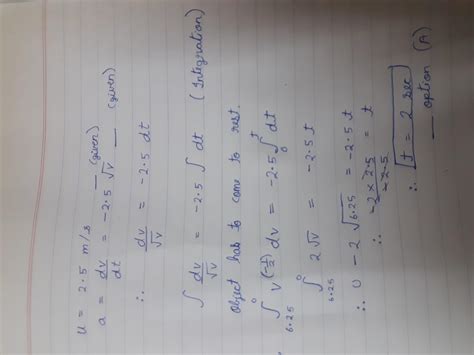 u = 2.5 m/s
a = dv/dt = -2.5 √v — (given) — (given)
∴ dv/√v = -2.5 dt
∫ dv/√v = -2.5 ∫ dt (Integration)
Object has to come to rest.
∫_{6.25}^{0} v^(-1/2) dv = -2.5 ∫_{0}^{t} dt
∫_{6.25}^{0} 2√v = -2.5 t
∴ 0 - 2√6.25 = -2.5 t
∴ -2 × 2.5 / -2.5 = t
∴ t = 2 sec
— option (A)